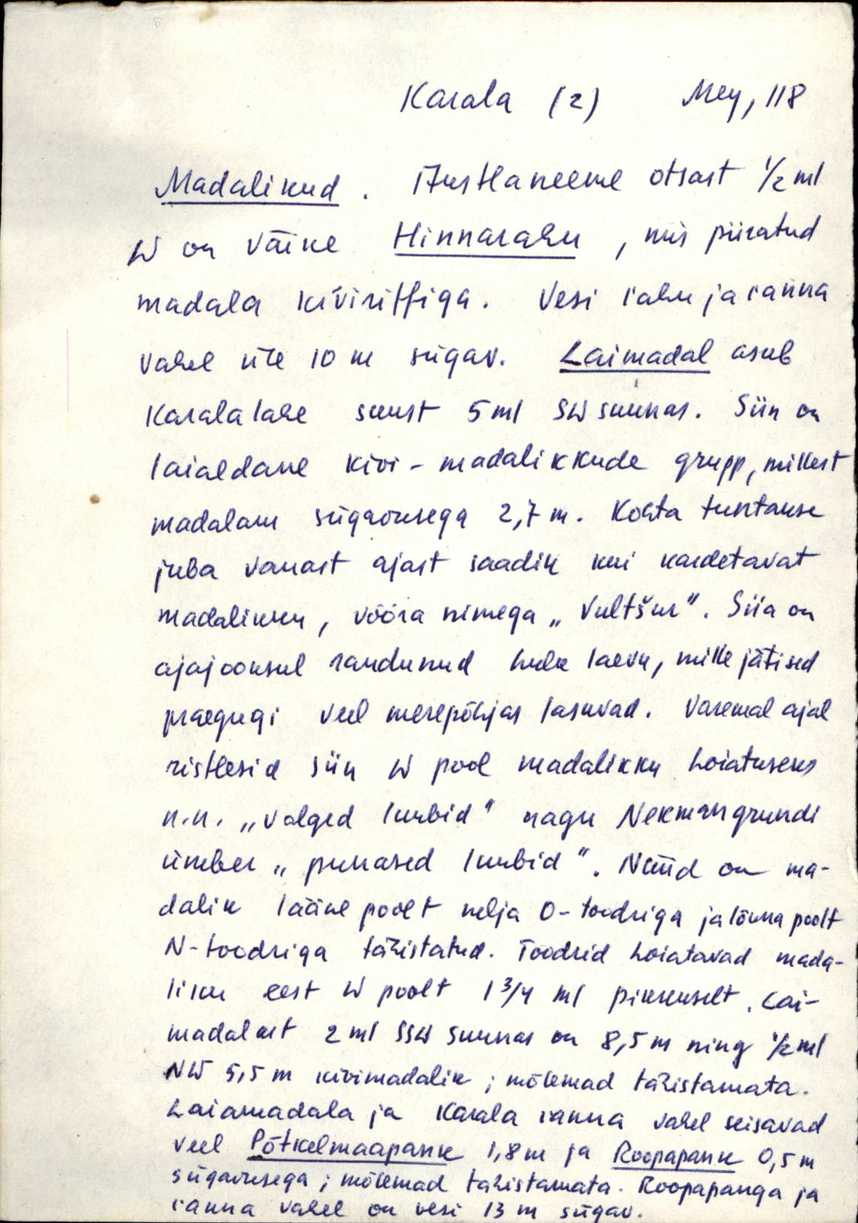 Karala (2) Mey, 118
Madalikud. Austlaneeme otsast 1/2 ml
W on väike Hinnarahu, mis piiratud
madala kiviriffiga. Vesi rahu ja ranna
vahel üle 10 m sügav. Laimadal asub
Karala lahe suust 5 ml SW suunas. Siin on
laialdane kivi-madalikkude grupp, millest
madalam sügavusega 2,7 m. Kohta tuntakse
juba vanast ajast saadik kui kardetavat
madalikku, võõra nimega „Vultšur". Siia on
ajajooksul randunud hulk laevu, mille jätised
praegugi veel merepõhjas lasuvad. Varemal ajal
ristlesid siin W pool madalikku hoiatuseks
n.n. „valged lumbid" nagu Nekmangrundi
ümber „punased lumbid". Nüüd on ma-
dalik lääne poolt nelja O-toodriga ja lõuna poolt
N-toodriga tähistatud. Toodrid hoiatavad mada-
liku eest W poolt 1 3/4 ml pikkuselt. Lai-
madalast 2 ml SSW suunas on 8,5 m ning 1/2 ml
NW 5,5 m kivimadalik; mõlemad tähistamata.
Laiamadala ja Karala ranna vahel seisavad
veel Põtkelmaapank 1,8 m ja Roopapank 0,5 m
sügavusega; mõlemad tähistamata. Roopapanga ja
ranna vahel on vesi 13 m sügav.